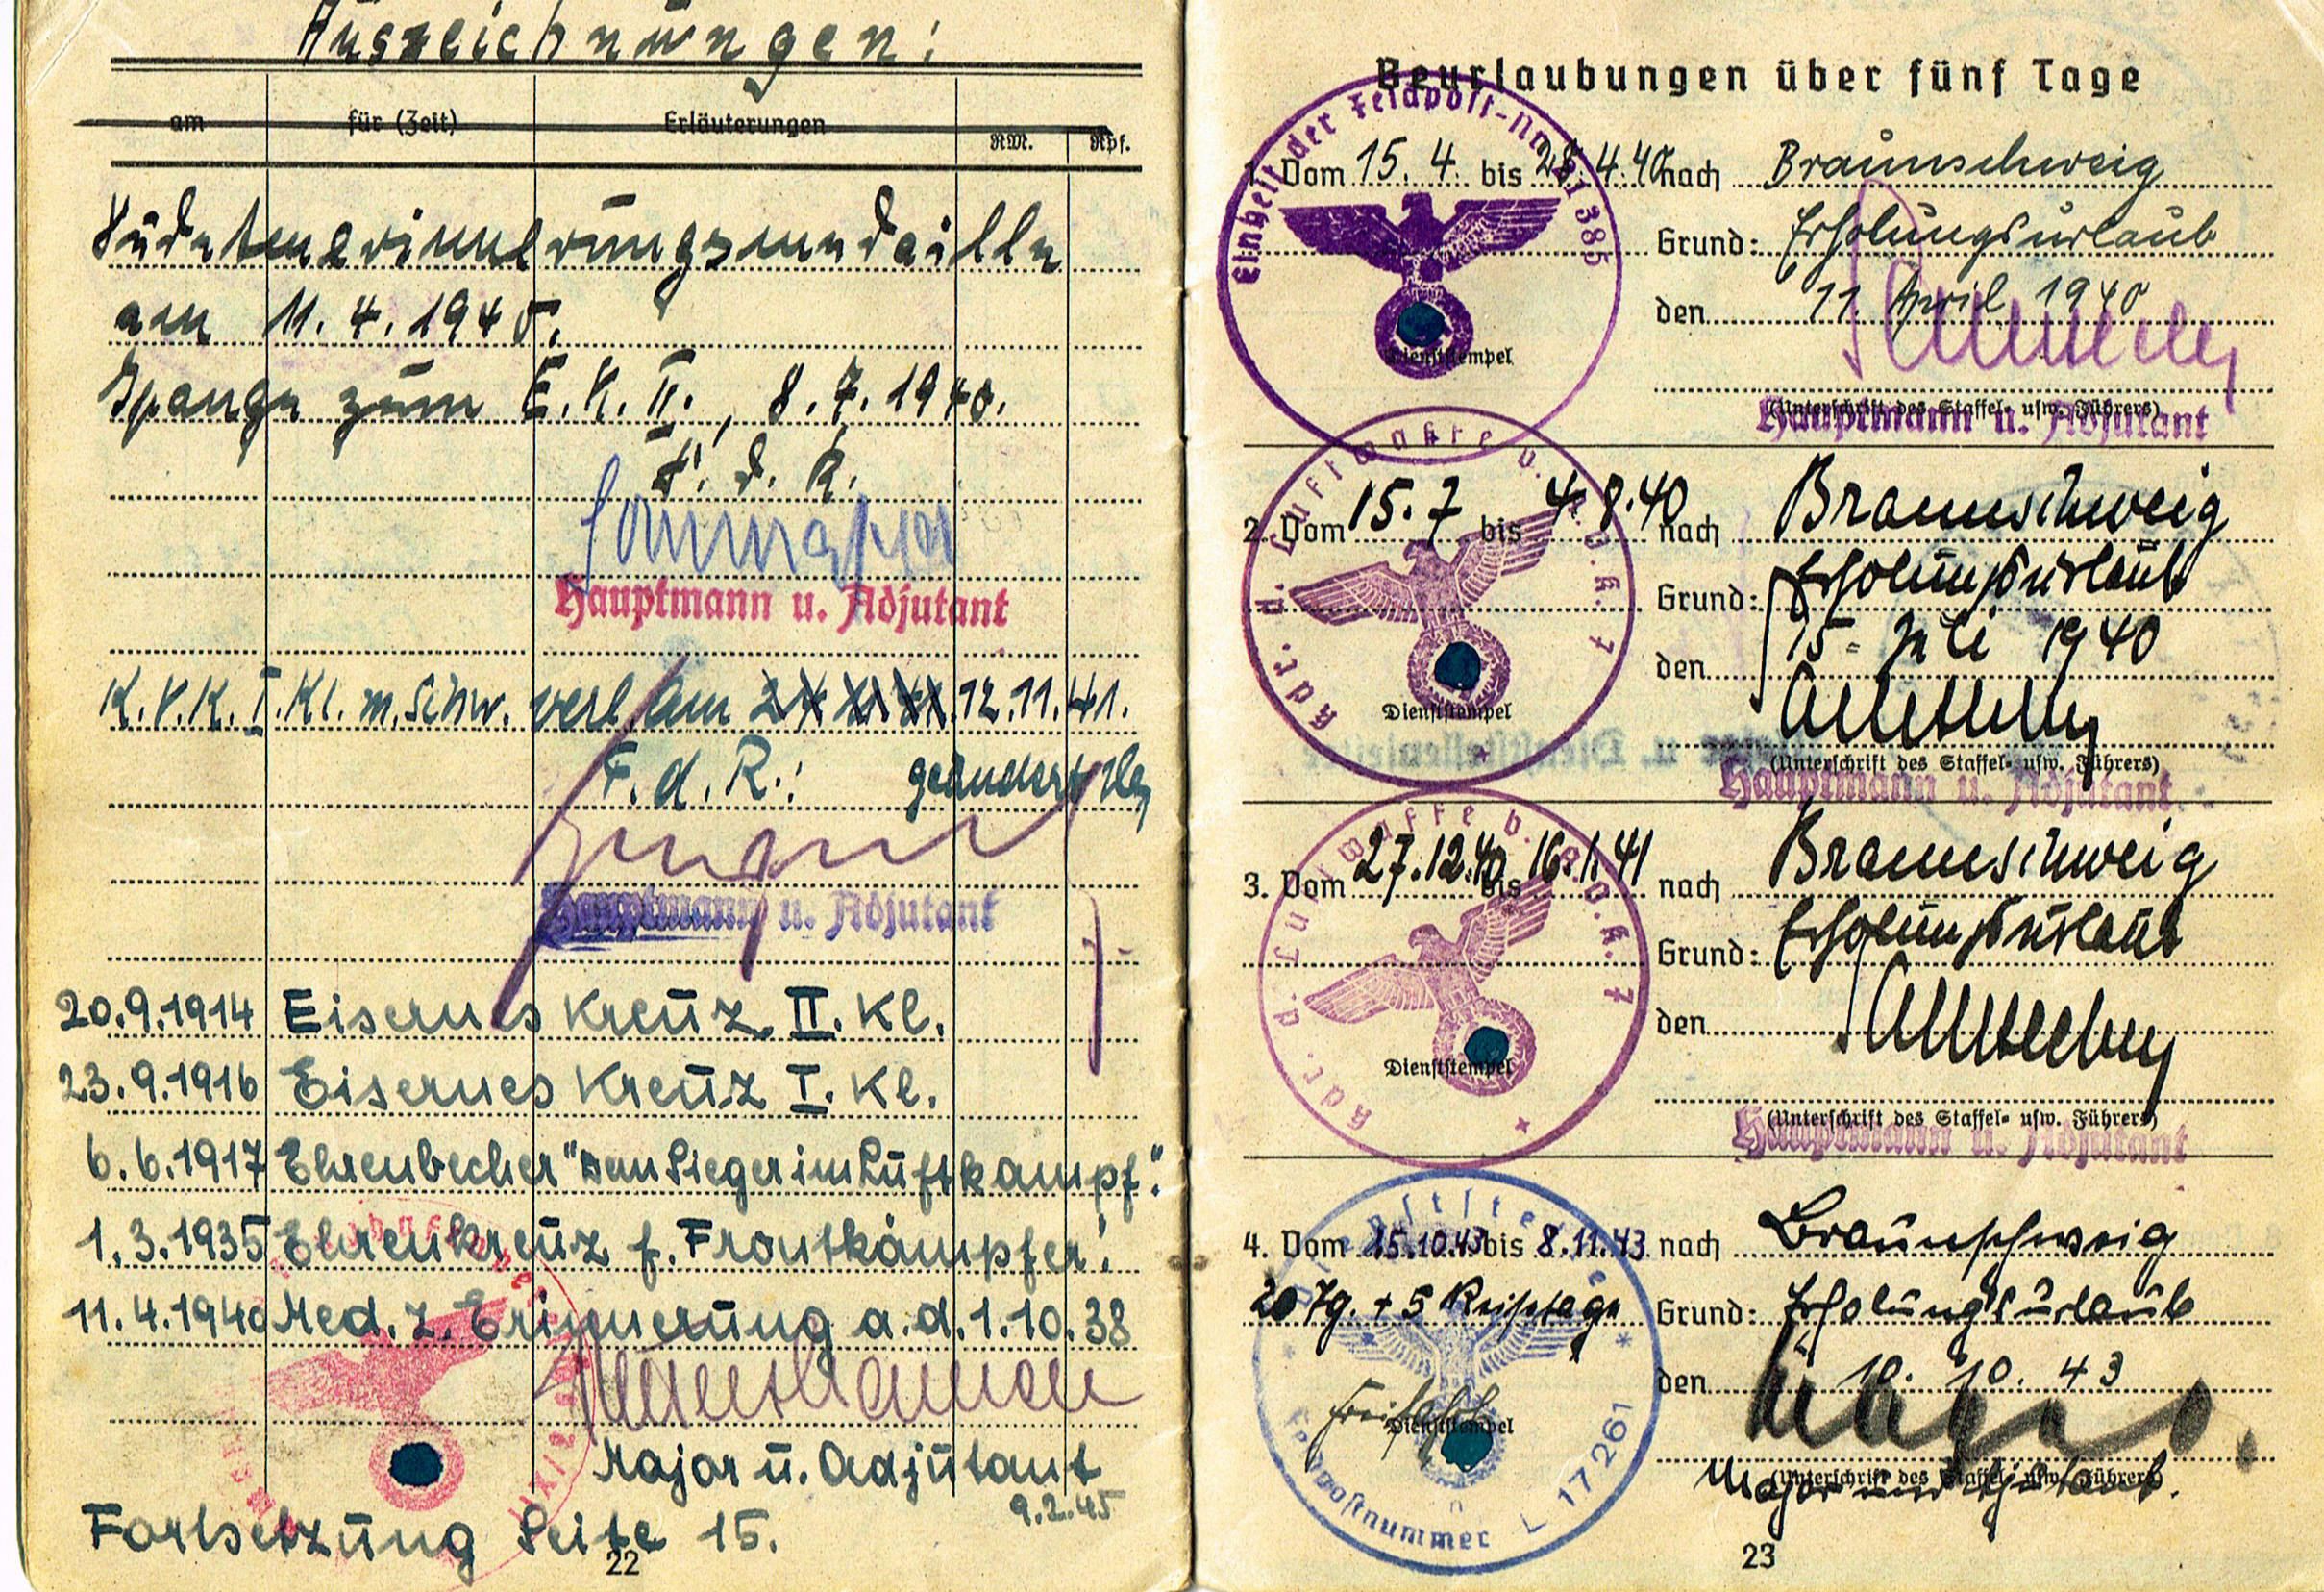 Auszeichnungen:
am für (Zeit) Erläuterungen RM. Rpf.
Sudetenerinnerungsmedaille
am 11.4.1940.
Spange zum E.K.II., 8.7.1940.
F.d.R.
Hauptmann u. Adjutant
K.V.K.I.Kl.m.Schw. verl. am 12.11.41.
F.d.R.: geändert
Hauptmann u. Adjutant
20.9.1914 Eisernes Kreuz II. Kl.
23.9.1916 Eisernes Kreuz I. Kl.
6.6.1917 Ehrenbecher "Dem Sieger im Luftkampf."
1.3.1935 Ehrenkreuz f. Frontkämpfer!
11.4.1940 Med. z. Erinnerung a.d. 1.10.38
Major u. Adjutant
9.2.45
Fortsetzung Seite 15.
22
Beurlaubungen über fünf Tage
Einheit der Feldpost-Nr. 385
1. Vom 15.4. bis 28.4.40 nach Braunschweig
Grund: Erholungsurlaub
den 11. April 1940
Dienststempel
(Unterschrift des Staffel- usw. Führers)
Hauptmann u. Adjutant
Kdr. d. Luftwaffe b. A.O.K. 7
2. Vom 15.7 bis 4.8.40 nach Braunschweig
Grund: Erholungsurlaub
den 15. Juli 1940
Dienststempel
(Unterschrift des Staffel- usw. Führers)
Hauptmann u. Adjutant
Kdr. d. Luftwaffe b. A.O.K. 7
3. Vom 27.12.40 bis 16.1.41 nach Braunschweig
Grund: Erholungsurlaub
den
Dienststempel
(Unterschrift des Staffel- usw. Führers)
Hauptmann u. Adjutant
Dienststelle
4. Vom 15.10.43 bis 8.11.43 nach Braunschweig
20 Tg. + 5 Reisetage Grund: Erholungsurlaub
den 10.10.43
Dienststempel
Feldpostnummer L 17261
(Unterschrift des Staffel- usw. Führers)
Major und Adjutant.
23